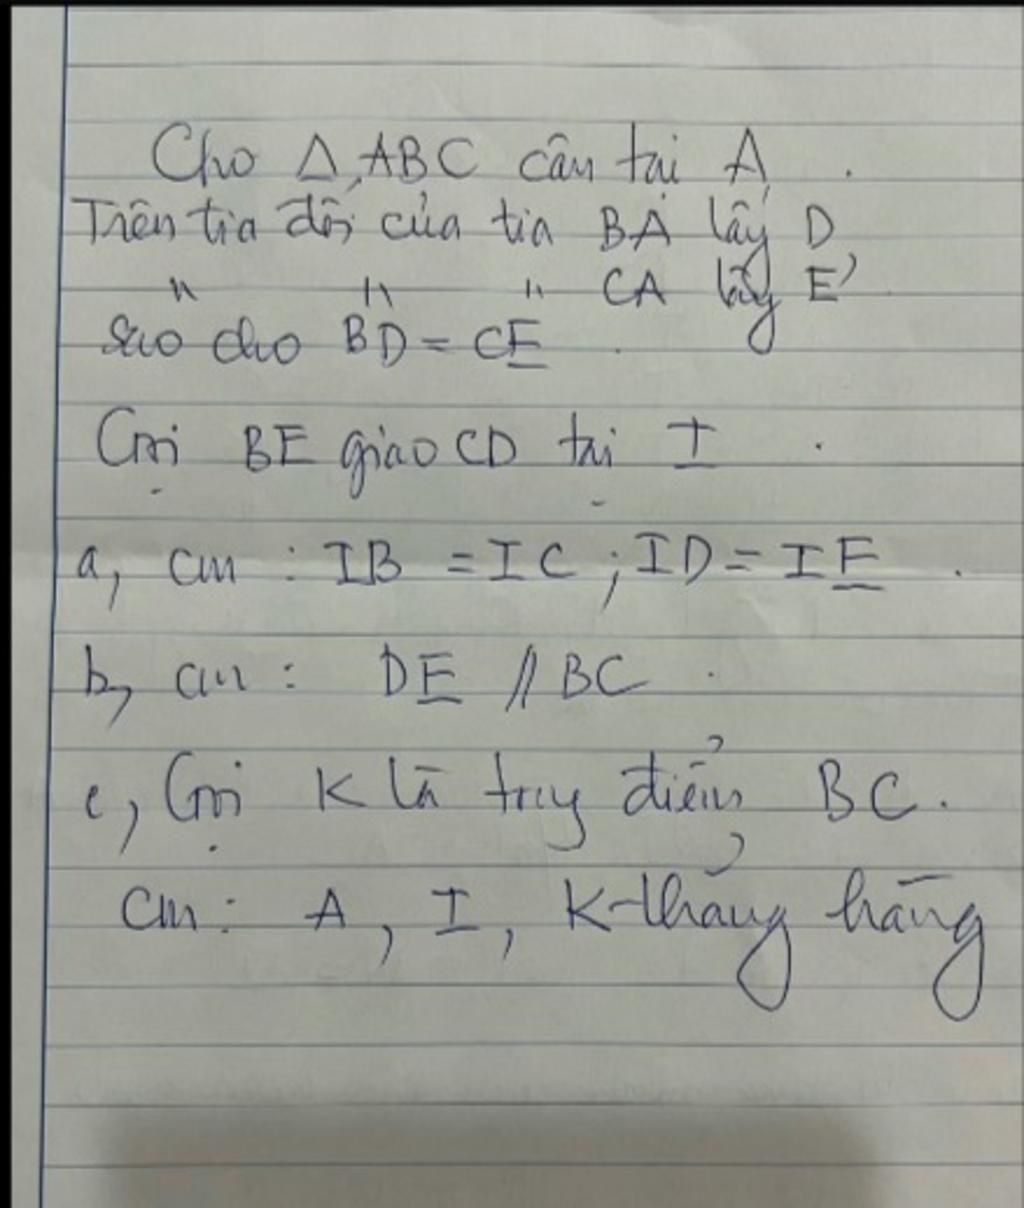 Cho △ ABC cân tại A.
Trên tia đối của tia BA lấy D,
" " " CA lấy E
sao cho BD = CE.
Gọi BE giao CD tại I.
a, cm : IB = IC ; ID = IE.
b, cm : DE // BC.
c, Gọi K là trug điểm BC.
Cm : A, I, K thẳng hàng